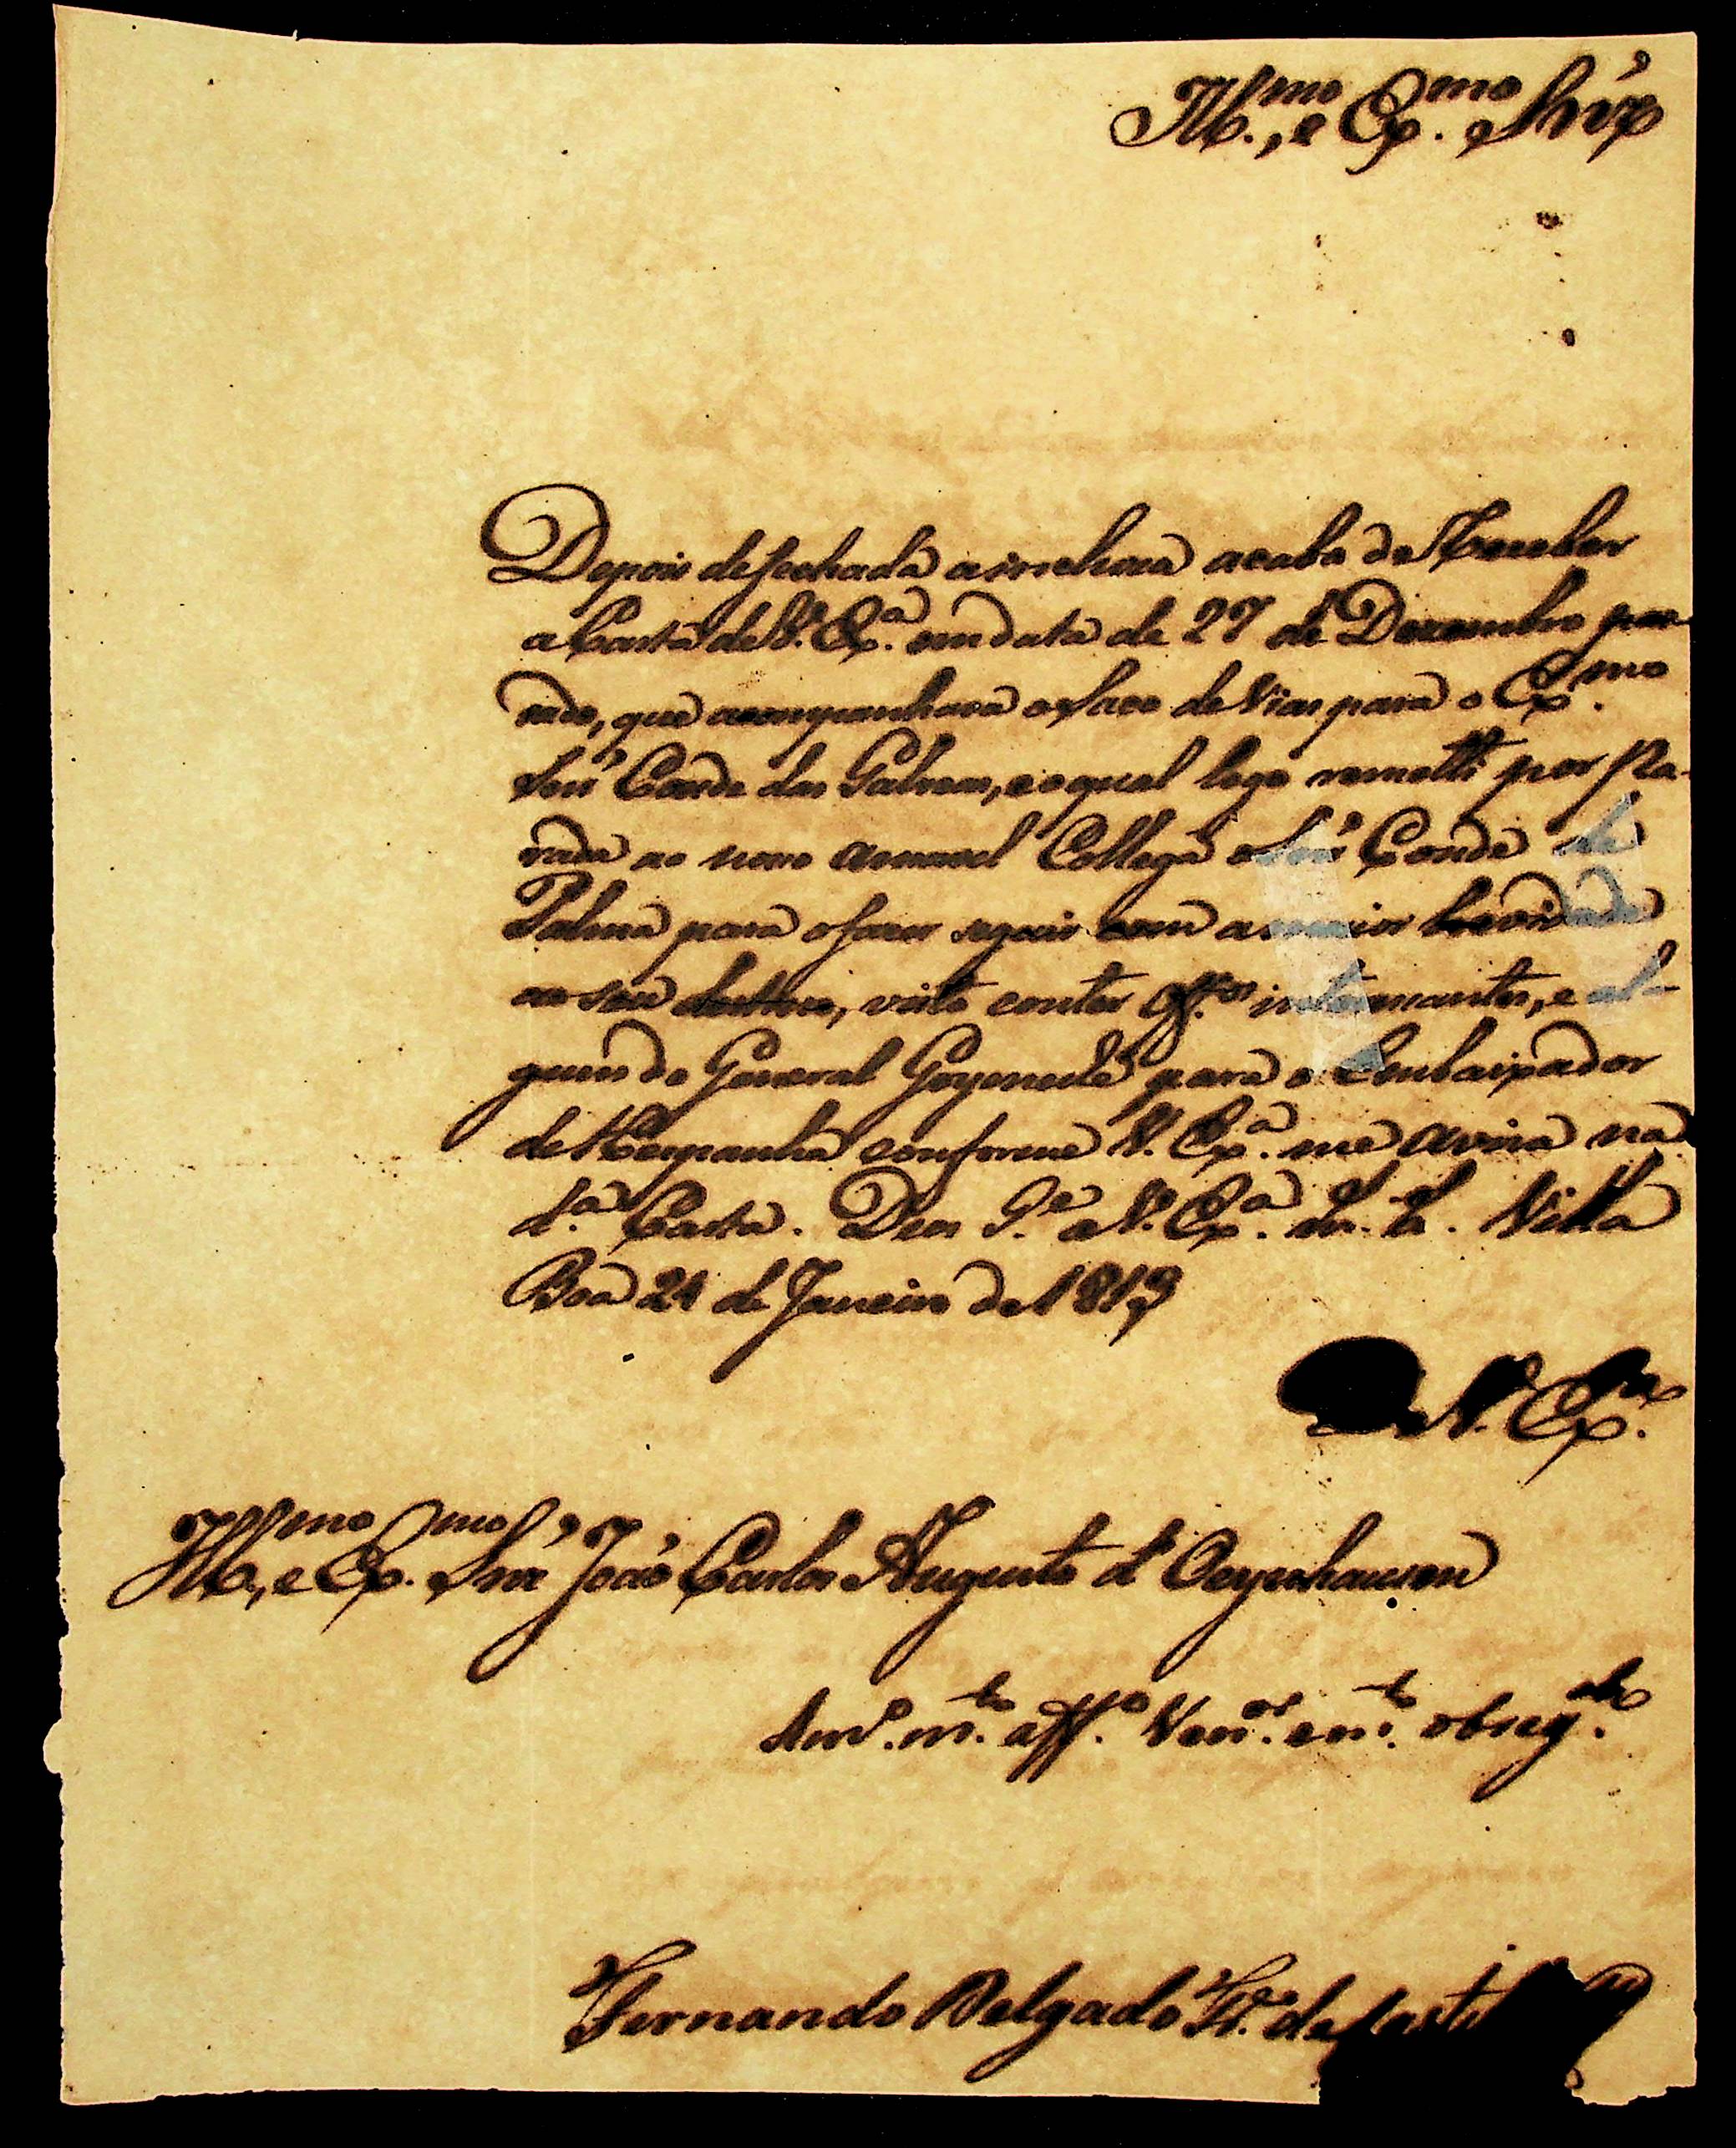 Ill.mo, e Ex.mo Snr.
Depois de fechada a minha acabo de Receber
a Carta de V. Ex.a em data de 27 de Dezembro pas-
sado, que acompanhava o saco de Vias para o Ex.mo
Snr. Conde das Galveas, e o qual logo remetti por Pa-
rada ao nosso amavel Collega o Snr. Conde de
Palma para o fazer seguir com a maior brevidade
ao seu destino, visto conter Off.os interessantes, e al-
guns do General Goyeneche para o Embaixador
de Hespanha conforme V. Ex.a me avisa na
d.a Carta. Deos G.e a V. Ex.a m.s a.s. Villa
Boa 21 de Janeiro de 1813
De V. Ex.a
Ill.mo, e Ex.mo Snr. João Carlos Augusto d'Oeynhausen
Am.o m.to aff.o Ven.or e m.to obrig.do
Fernando Delgado Fr.e de Castilho